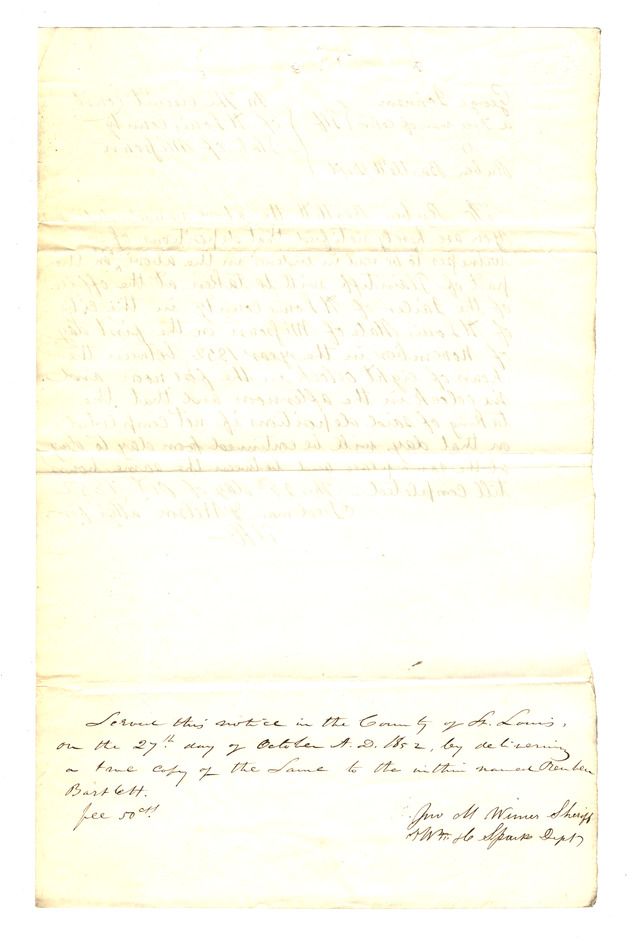 Served this notice in the County of St. Louis,
on the 27th day of October A. D. 1852, by delivering
a true copy of the Same to the within named Reuben
Bartlett.
fee 50 cts
Jno M Wimer Sheriff
Wm H Spark Dept
George Johnson
a Free man of color
Reuben Bartlett
In the circuit court
of St Louis county
State of Missouri
To Reuben Bartlett the above
you are hereby notified that depositions of
witnesses to be read in evidence in the above on the
part of Plaintiff will be taken at the office
of the Jailer of St Louis county in the city
of St Louis State of Missouri on the first day
of November in the year 1852 between the
hours of eight oclock in the fore noon and
six oclock in the afternoon and that the
taking of said depositions if not completed
on that day will be continued from day to day
at the same place and between the same hours
till completed